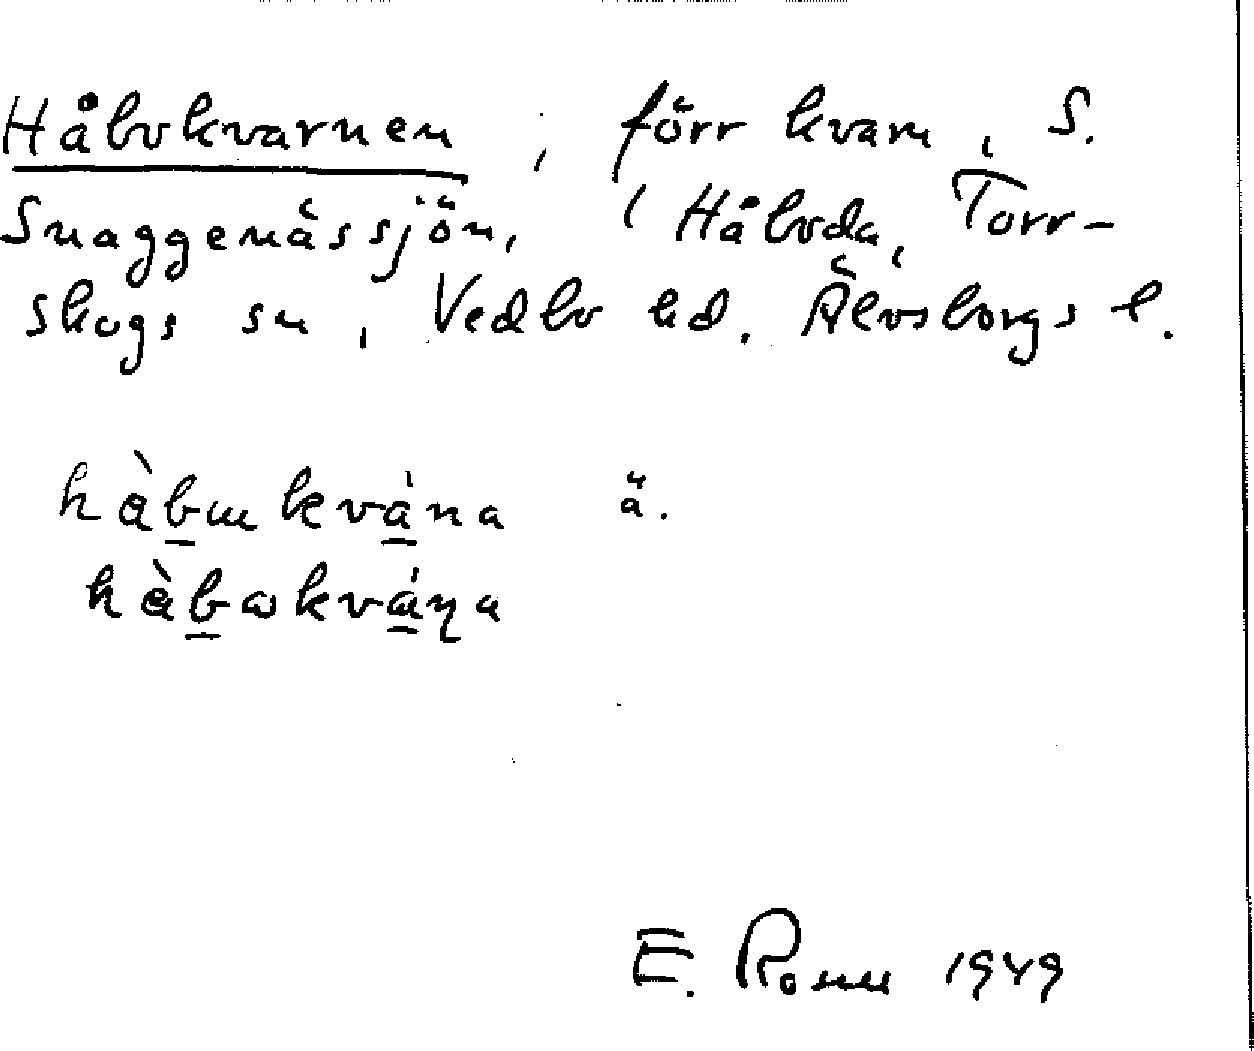 Håbokvarnen, förr kvarn, S.
Snaggenässjön, i Håboda, Torr-
skogs sn, Vedbo hd. Älvsborgs l.
hàbɯkvána ä.
hàbωkváɳa
E. 1949